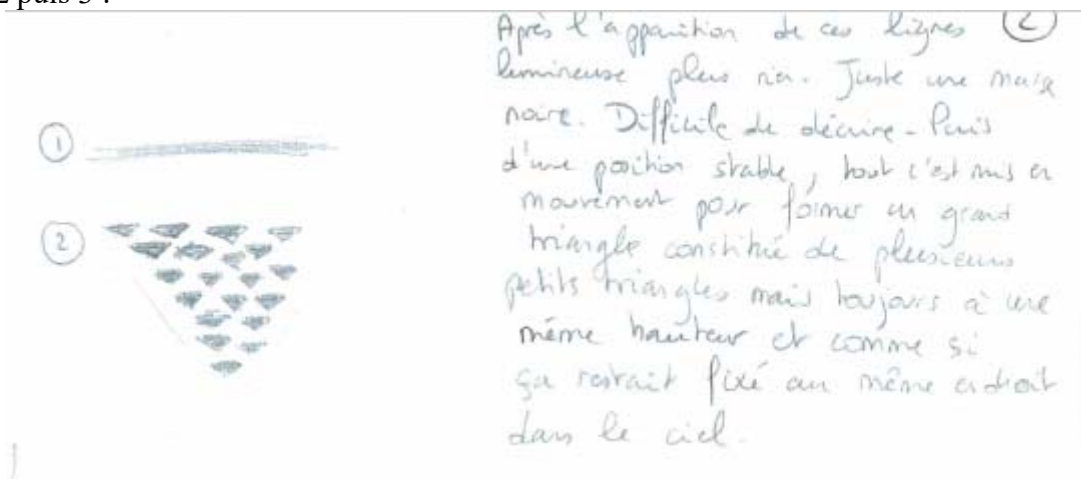 2 puis 3 :
Après l'apparition de ces lignes (2)
lumineuse plus rien. Juste une masse
noire. Difficile de décrire - Puis
d'une position stable, tout c'est mis en
mouvement pour former un grand
triangle constitué de plusieurs
petits triangles mais toujours à une
même hauteur et comme si
ça restait fixé au même endroit
dans le ciel.
(1)
(2)